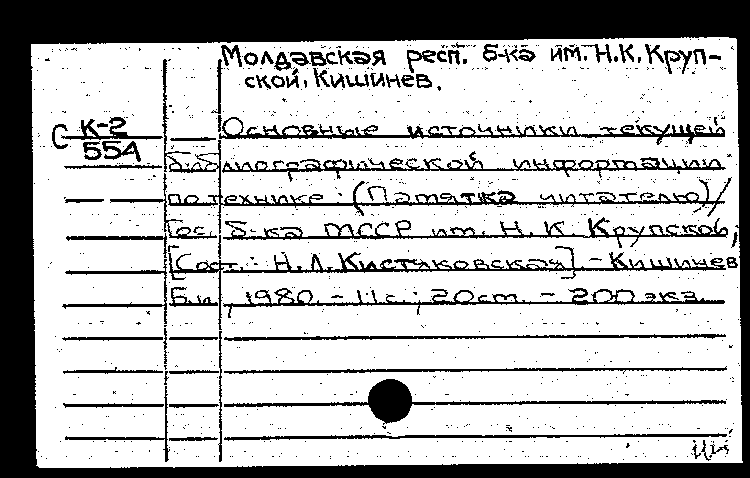 Молдавская респ. б-ка им. Н.К. Круп-
ской, Кишинев.
С К-2
554
Основные источники текущей
библиографической информации
по технике: (Памятка читателю)/
Гос. б-ка МССР им. Н. К. Крупской;
[Сост.: Н.Л. Кистяковская] - Кишинев
Б.и., 1980. - 11 с.; 20 см. - 200 экз.